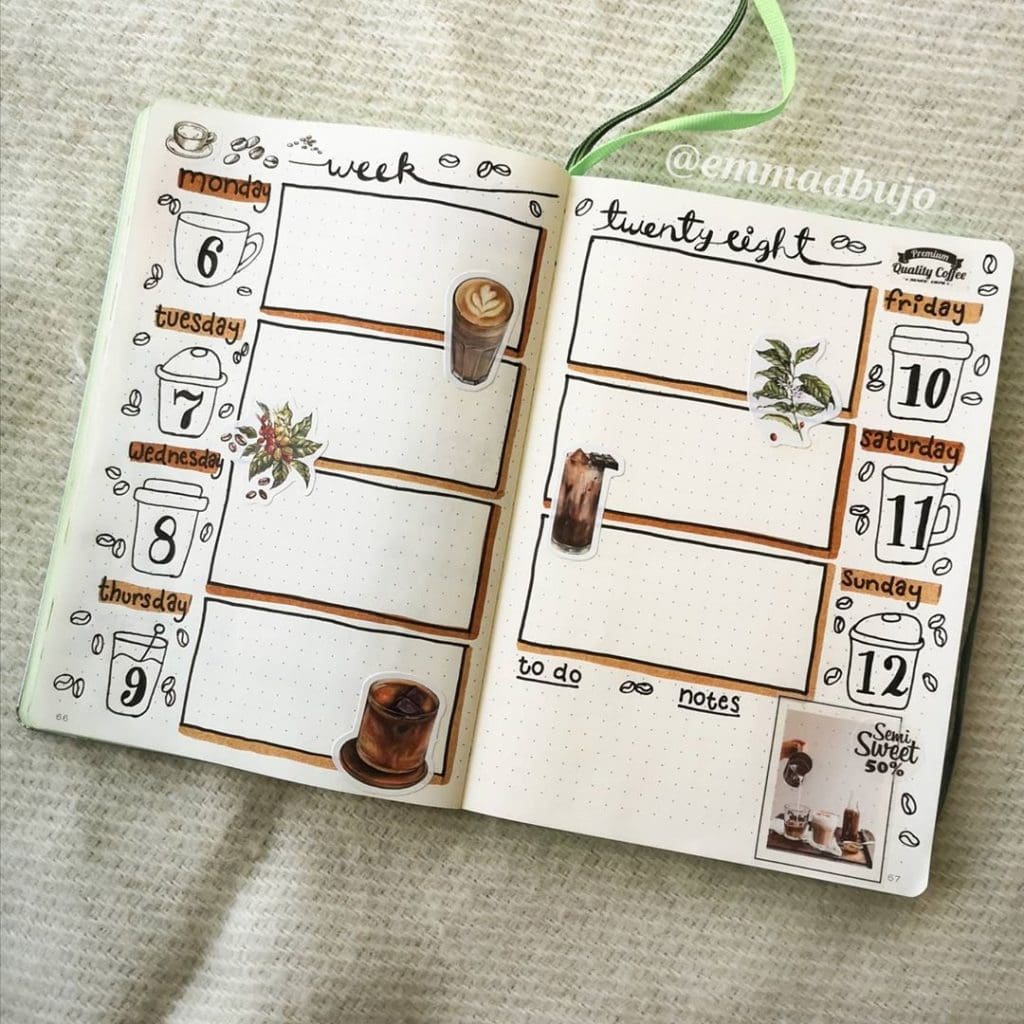 @emmadbujo
week
monday
6
tuesday
7
wednesday
8
thursday
9
66
twenty eight
Premium
Quality Coffee
friday
10
saturday
11
sunday
12
to do
notes
Semi
Sweet
50%
67